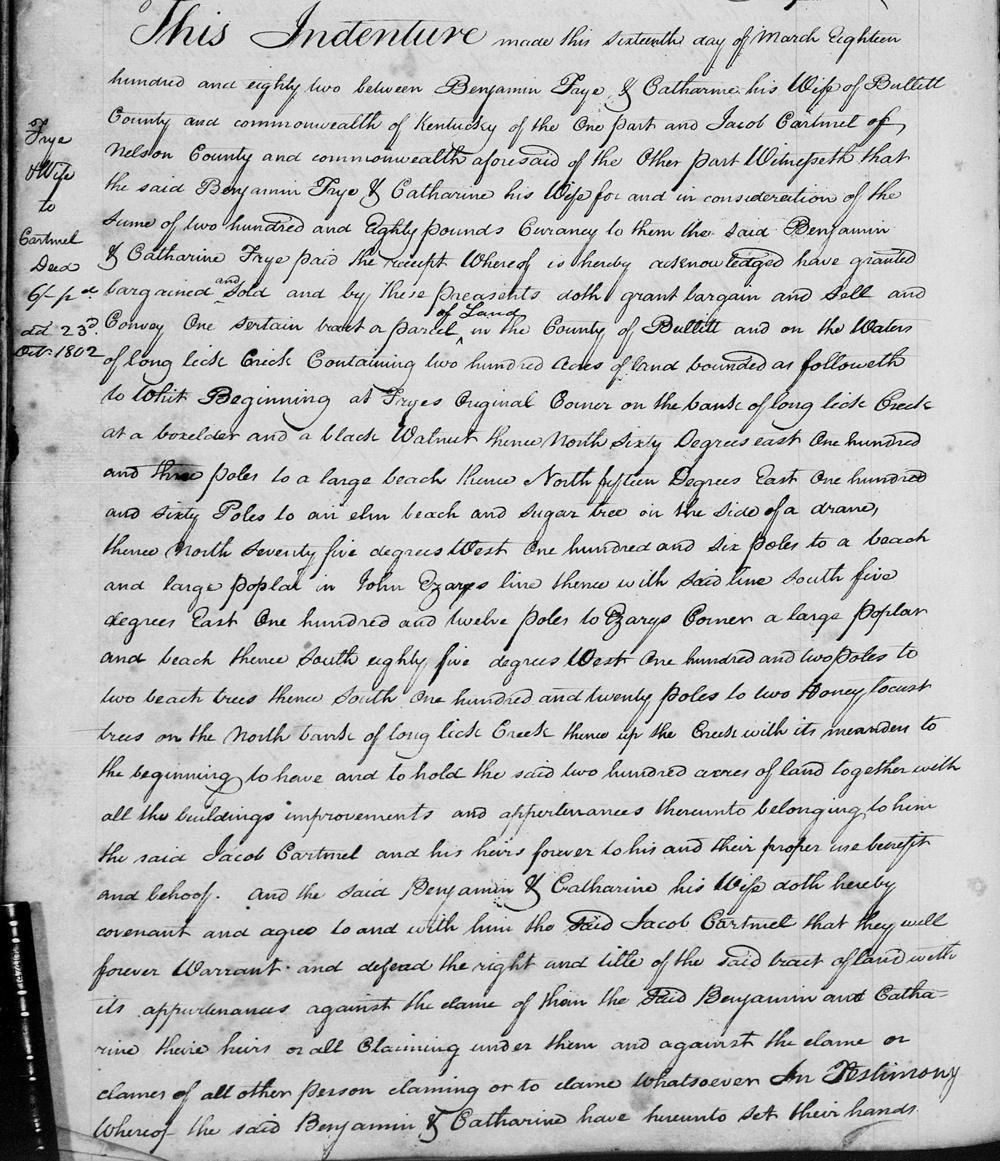 This Indenture made this sixteenth day of March Eighteen
hundred and eighty two between Benjamin Frye & Catharine his Wife of Bullett
County and commonwealth of Kentucky of the One part and Jacob Cartmel of
Nelson County and commonwealth aforesaid of the Other part Witnesseth that
the said Benjamin Frye & Catharine his Wife for and in consideration of the
sume of two hundred and Eighty pounds Curancy to them the said Benjamin
& Catharine Frye paid the receipt Whereof is hereby acknowledged have granted
bargained and Sold and by these preasents doth grant bargain and sell and
Convey One sertain tract a parcel of Land in the County of Bullitt and on the Waters
of long lick Crick Containing two hundred Acres of land bounded as followeth
to Whit Beginning at Fryes Original Corner on the bank of long lick Creek
at a boxelder and a black Walnut thence North Sixty Degrees east One hundred
and three poles to a large beach thence North fifteen Degrees East One hundred
and sixty Poles to an elm beach and sugar tree on the side of a drane,
thence North Seventy five degrees West One hundred and six poles to a beach
and large poplal in John Ezarys line thence with said line South five
degrees East One hundred and twelve poles to Ezarys Corner a large poplar
and beach thence South eighty five degrees West One hundred and two poles to
two beach trees thence South One hundred and twenty poles to two Honey locust
trees on the North bank of long lick Creek thence up the Creek with its meanders to
the beginning to have and to hold the said two hundred acres of land together with
all the buildings improvements and appertenances thereunto belonging to him
the said Jacob Cartmel and his heirs forever to his and their proper use benefit
and behoof. and the said Benjamin & Catharine his Wife doth hereby
covenant and agree to and with him the Said Jacob Cartmel that they will
forever Warrant and defend the right and title of the said tract of land with
its appurtenances against the clame of them the Said Benjamin and Catha-
rine theire heirs or all Claiming under them and against the clame or
clames of all other person claming or to clame whatsoever In Testimony
Whereof the said Benjamin & Catharine have hereunto set their hands
Frye
& Wife
to
Cartmel
Deed
6/- pd
dd 23d.
Octr. 1802